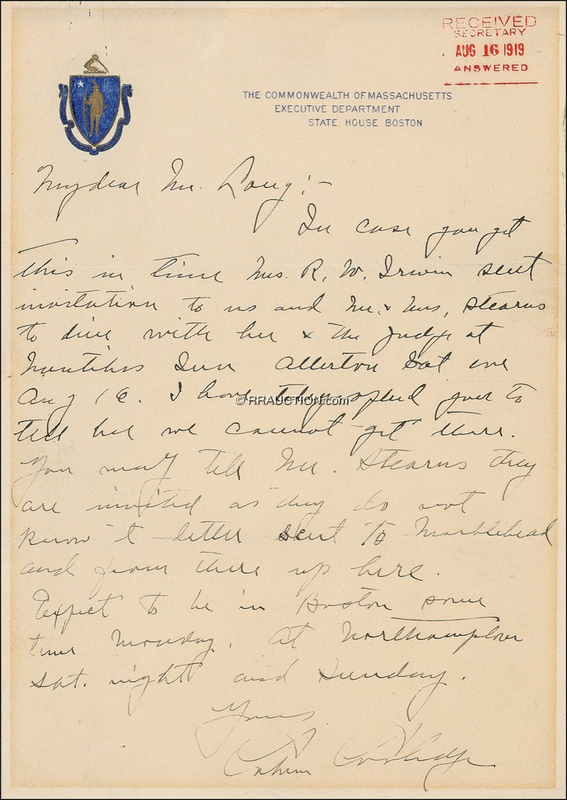 RECEIVED
SECRETARY
AUG 16 1919
ANSWERED
THE COMMONWEALTH OF MASSACHUSETTS
EXECUTIVE DEPARTMENT
STATE HOUSE BOSTON
My dear Mr. Long:-
In case you get
this in time Mrs. R. W. Irwin sent
invitation to us and Mr. & Mrs. Stearns
to dine with her & the Judge at
Nautilus Inn Allerton Sat eve
Aug 16. I have telegraphed you to
tell her we cannot get there.
You may tell Mr. Stearns they
are invited as they do not
know it letter sent to Marblehead
and from there up here.
Expect to be in Boston some
time Monday. At Northampton
Sat. night and Sunday.
Yours
Calvin Coolidge
© RRAUCTION.com